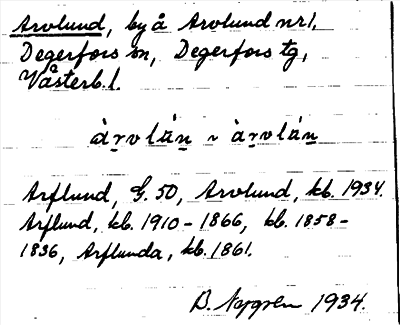 Arvlund, by å Arvlund nr 1,
Degerfors sn, Degerfors tg,
Västerb. l.
àrvlún ~ àrvlún
Arflund, G. 50, Arvlund, kb. 1934.
Arflund, kb. 1910-1866, kb. 1858-
1836, Arflunda, kb. 1861.
B. Nygren 1934.